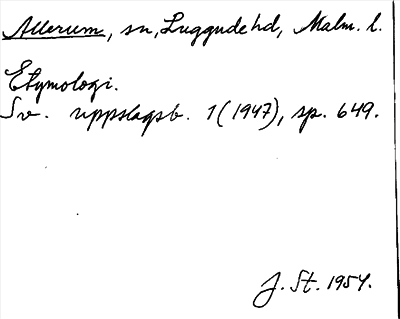 Allerum, sn, Luggude hd, Malm. l.
Etymologi.
Sv. uppslagsb. 1 (1947), sp. 649.
J. St. 1954.